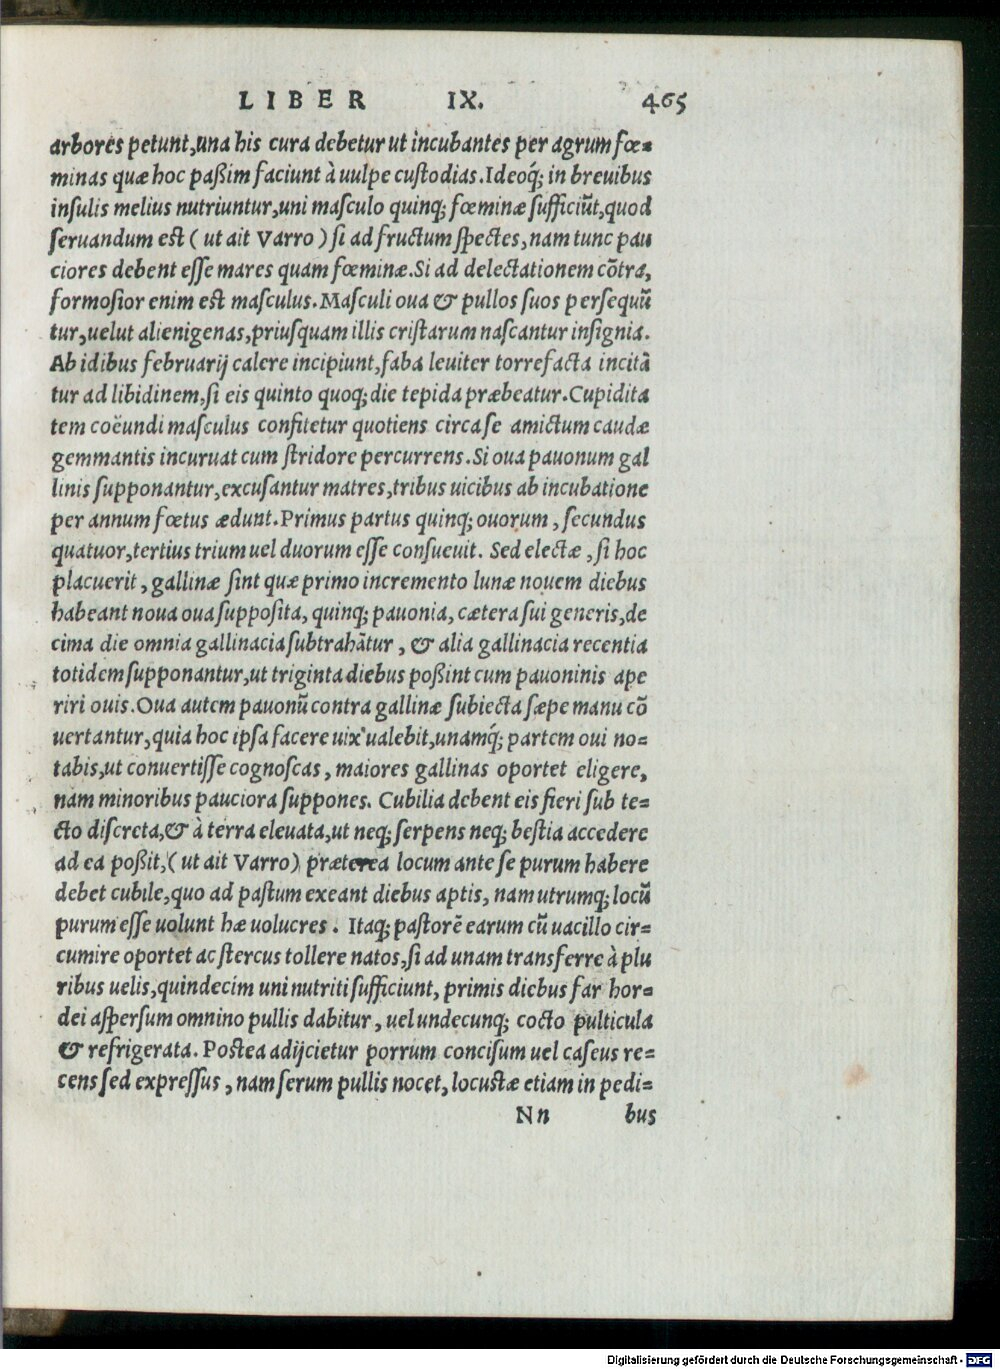 LIBER IX. 465
arbores petunt,una his cura debetur ut incubantes per agrum fœ=
minas quæ hoc paßim faciunt à uulpe custodias.Ideoq́; in breuibus
insulis melius nutriuntur,uni masculo quinq; fœminæ sufficiūt,quod
seruandum est ( ut ait Varro ) si ad fructum spectes, nam tunc pau
ciores debent esse mares quam fœminæ.Si ad delectationem cōtra,
formosior enim est masculus. Masculi oua & pullos suos persequū
tur,uelut alienigenas,priusquam illis cristarum nascantur insignia.
Ab idibus februarij calere incipiunt,faba leuiter torrefacta incitā
tur ad libidinem,si eis quinto quoq; die tepida præbeatur.Cupidita
tem coëundi masculus confitetur quotiens circa se amictum caudæ
gemmantis incuruat cum stridore percurrens. Si oua pauonum gal
linis supponantur,excusantur matres,tribus uicibus ab incubatione
per annum fœtus ædunt.Primus partus quinq; ouorum , secundus
quatuor,tertius trium uel duorum esse consueuit. Sed electæ , si hoc
placuerit , gallinæ sint quæ primo incremento lunæ nouem diebus
habeant noua oua supposita, quinq; pauonia, cætera sui generis,de
cima die omnia gallinacia subtrahātur , & alia gallinacia recentia
totidem supponantur,ut triginta diebus poßint cum pauoninis ape
riri ouis.Oua autem pauonū contra gallinæ subiecta sæpe manu cō
uertantur,quia hoc ipsa facere uix ualebit,unamq́; partem oui no=
tabis,ut conuertisse cognoscas , maiores gallinas oportet eligere,
nam minoribus pauciora suppones. Cubilia debent eis fieri sub te=
cto discreta,& à terra eleuata,ut neq; serpens neq; bestia accedere
ad ea poßit,( ut ait Varro) præterea locum ante se purum habere
debet cubile,quo ad pastum exeant diebus aptis, nam utrumq; locū
purum esse uolunt hæ uolucres . Itaq; pastorē earum cū uacillo cir=
cumire oportet ac stercus tollere natos,si ad unam transferre à plu
ribus uelis,quindecim uni nutriti sufficiunt, primis diebus far hor=
dei aspersum omnino pullis dabitur , uel undecunq; cocto pulticula
& refrigerata. Postea adijcietur porrum concisum uel caseus re=
cens sed expressus , nam serum pullis nocet, locustæ etiam in pedi=
Nn bus
Digitalisierung gefördert durch die Deutsche Forschungsgemeinschaft - DFG